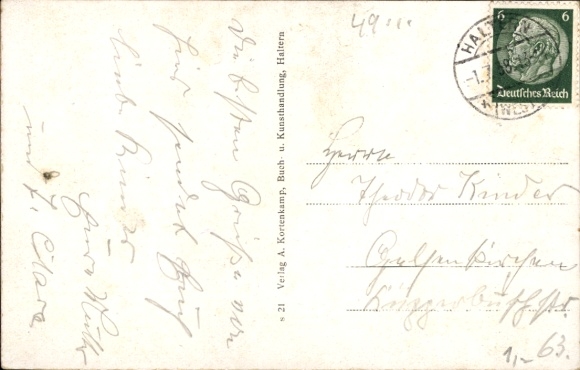 49...
Die besten Grüße von
hier sendet Euch
liebe Kinder
Eure Mutter
und T. Clara
s 21 Verlag A. Kortenkamp, Buch- u. Kunsthandlung, Haltern
6 6
Deutsches Reich
HALTERN
(WESTF
Herrn
Theodor Kinder
Gelsenkirchen
Küppersbuschstr.
63.
1,-